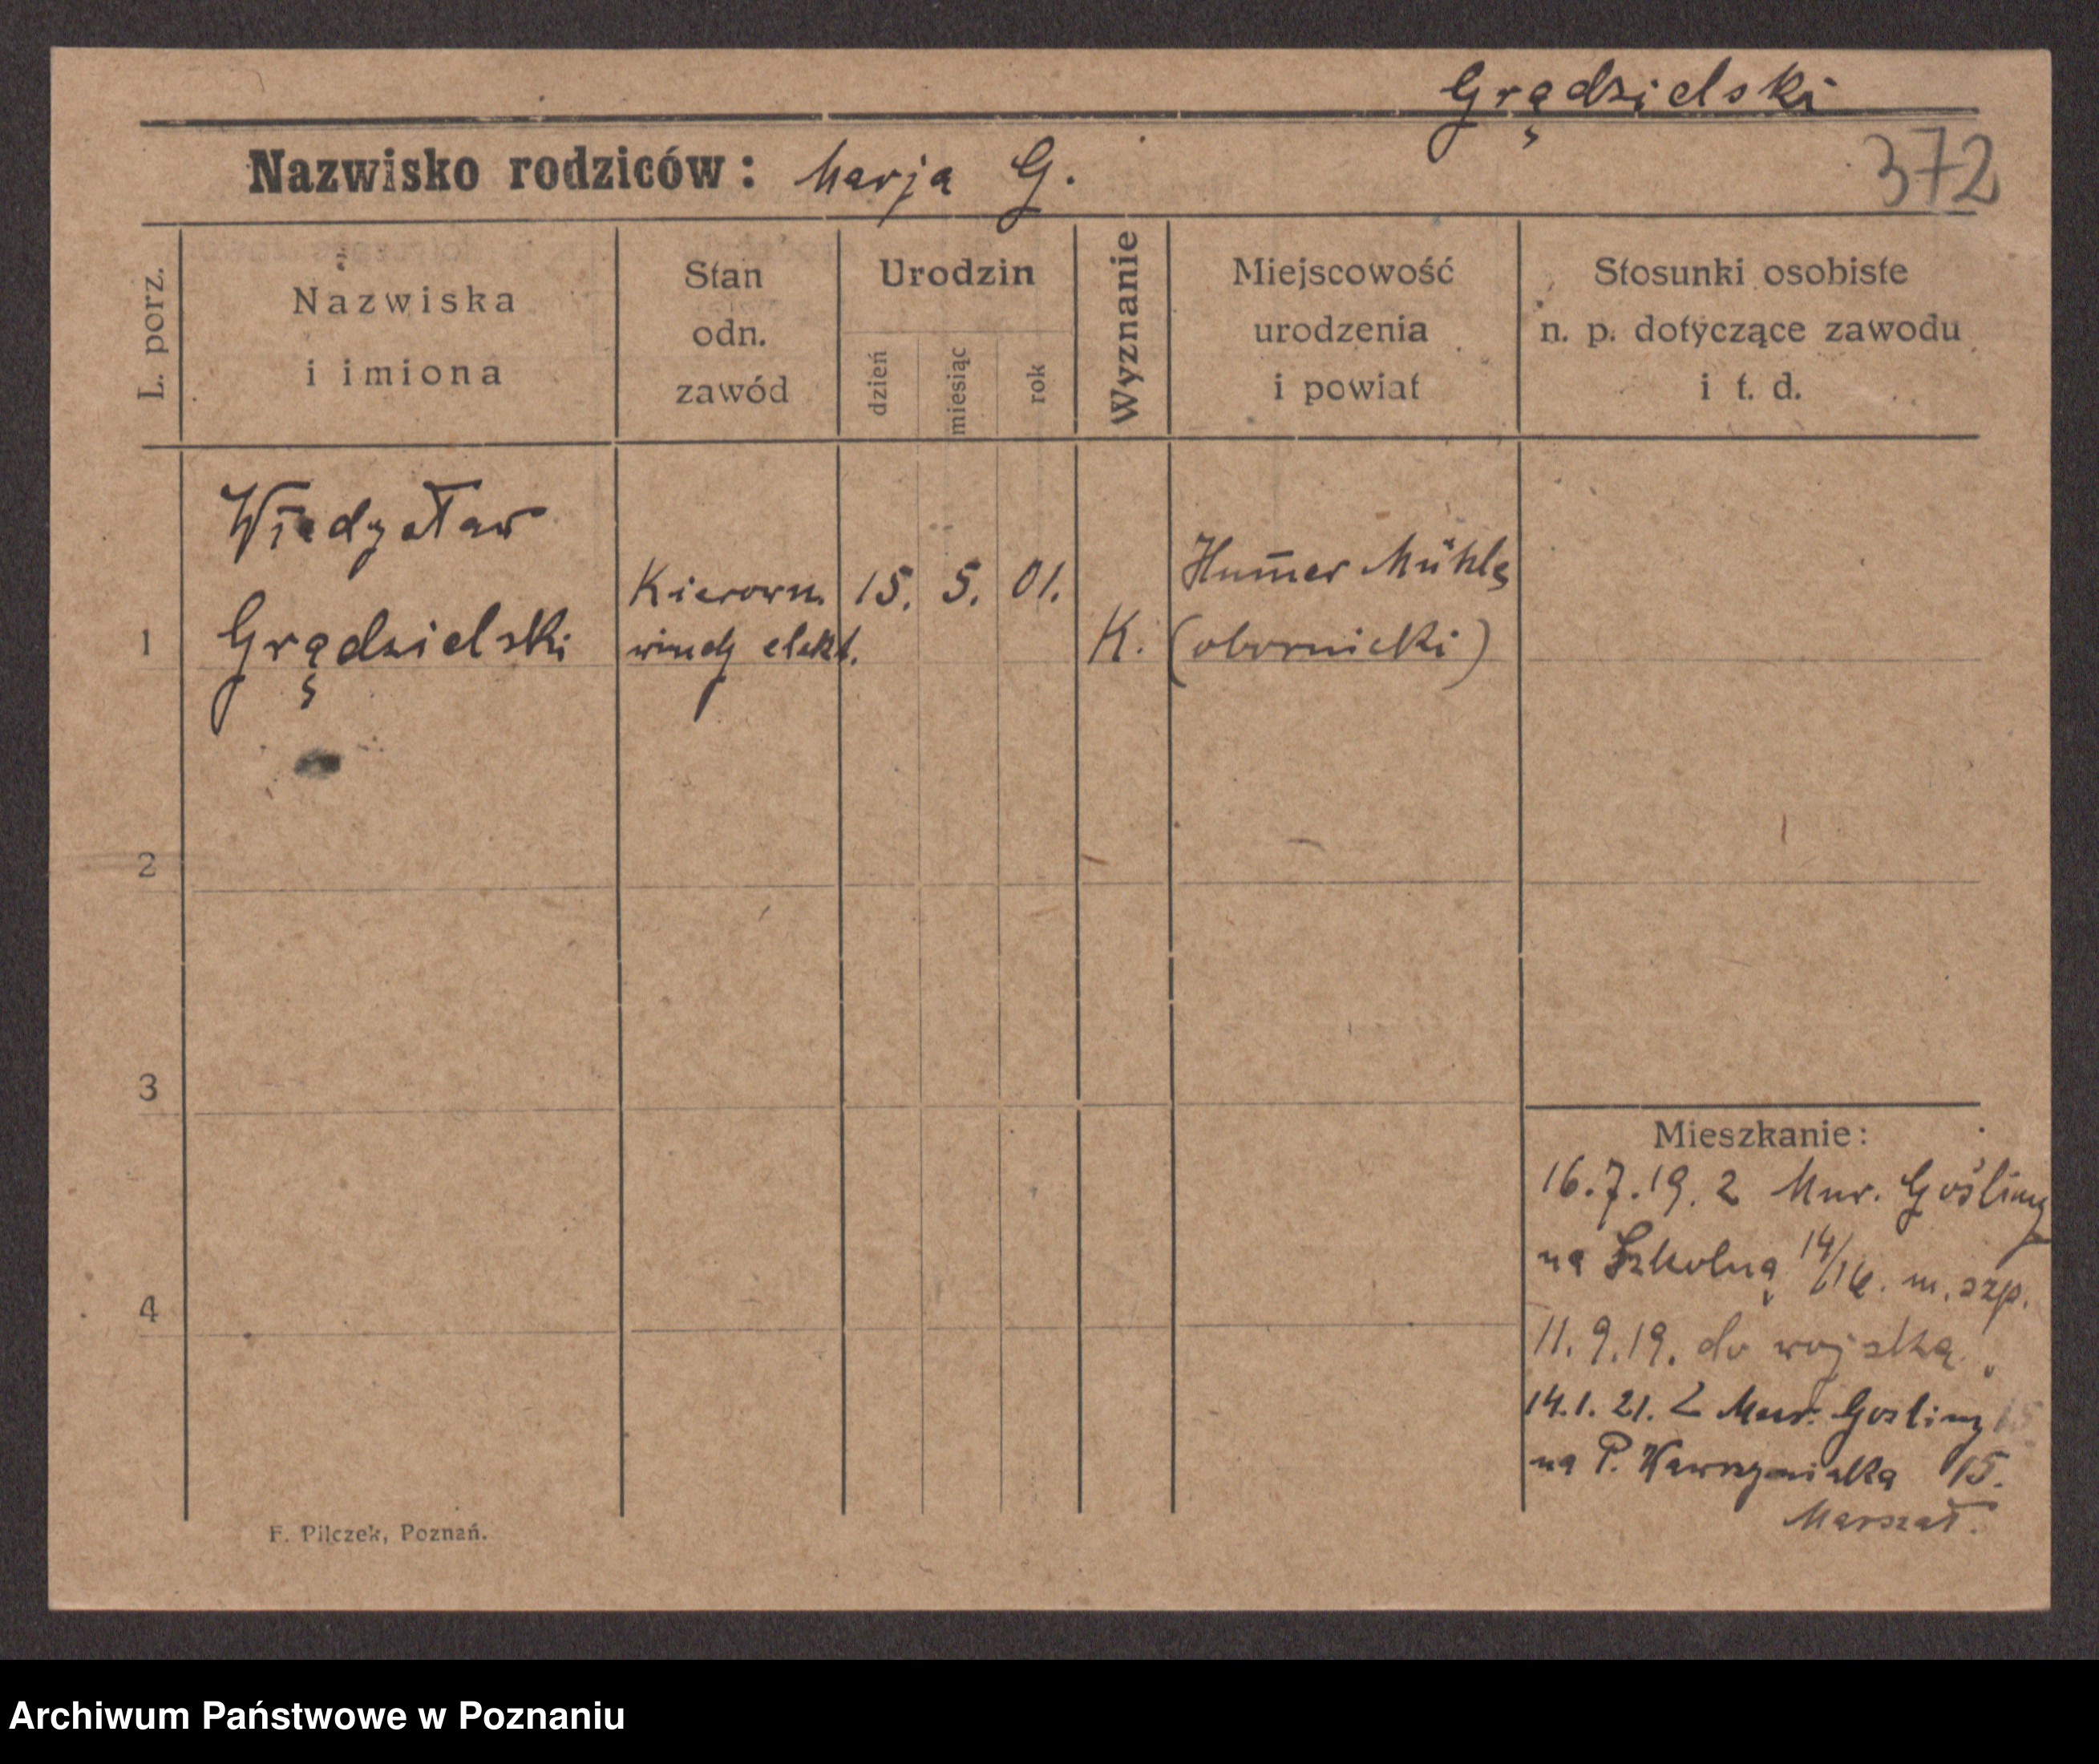 Grądzielski
Nazwisko rodziców: Marja G.
372
L. porz.
Nazwiska
i imiona
Stan
odn.
zawód
Urodzin
dzień
miesiąc
rok
Wyznanie
Miejscowość
urodzenia
i powiat
Stosunki osobiste
n. p. dotyczące zawodu
i t. d.
1
Władysław
Grądzielski
Kierown.
windy elekt.
15. 5. 01.
K.
Hum̅er Mühle
(obornicki)
2
3
4
Mieszkanie:
16.7.19. z Mur. Gośliny
na Szkolną 14/16. m. szp.
11.9.19. do wojska
14.1.21. Z Mur. Gosliny
na P. Wawrzyniaka 15.
Marszał.
F. Pilczek, Poznań.
Archiwum Państwowe w Poznaniu